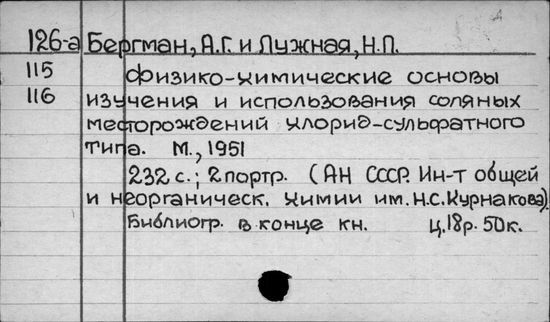 126-а Бергман, А.Г. и Лужная, Н.П.
115 Физико-химические основы
116 изучения и использования соляных
месторождений хлорид-сульфатного
типа. М., 1951
232 с.; 2 портр. (АН СССР. Ин-т общей
и неорганическ. химии им. Н.С. Курнакова).
Библиогр. в конце кн. ц. 18 р. 50 к.